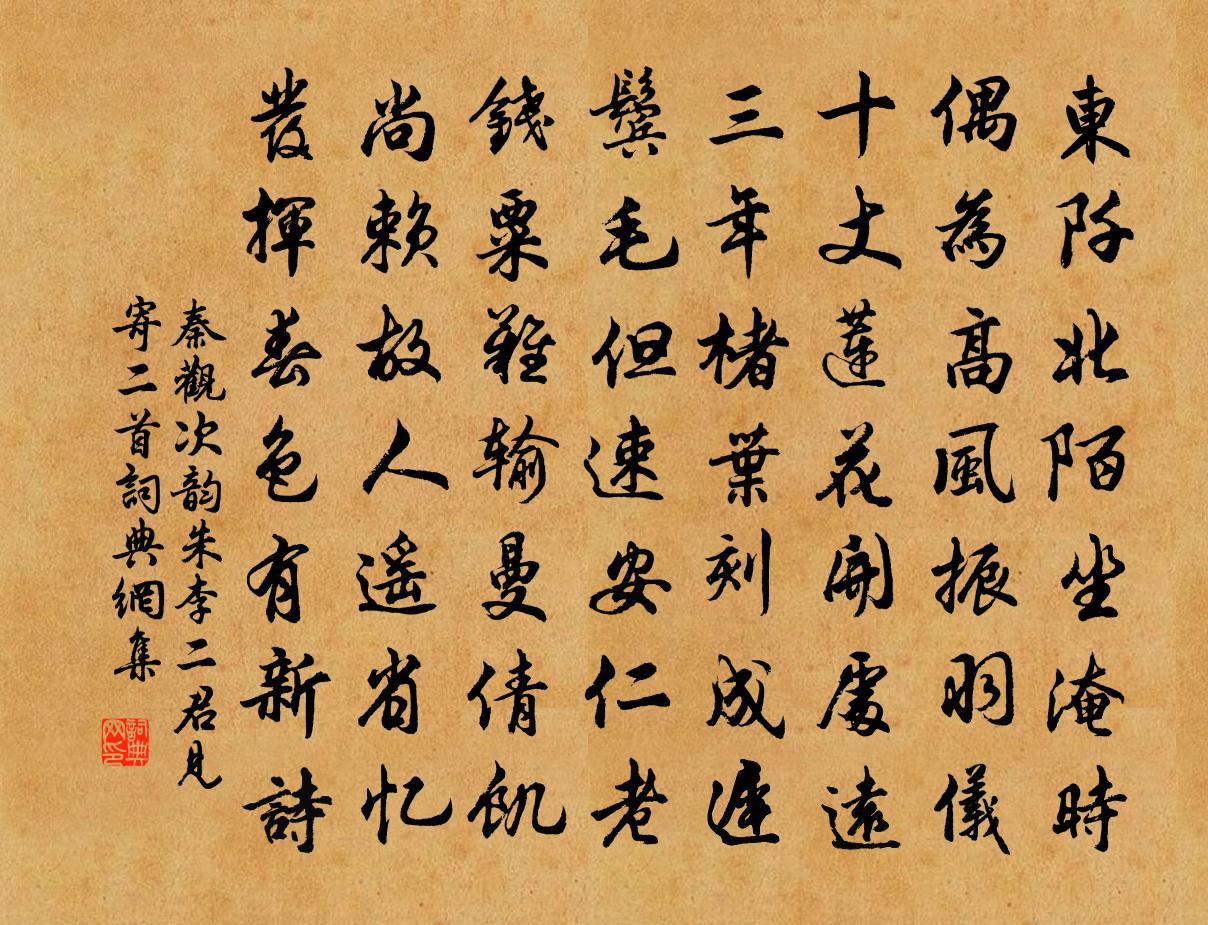 東阡北陌坐淹時
偶為高風振羽儀
十丈蓮花開處遠
三年楮葉刻成遲
鬢毛但速安仁老
錢粟難輸曼倩飢
尚賴故人遥省忆
發揮春色有新詩
秦觀次韵朱李二君見
寄二首詞典網集
詞典
网印